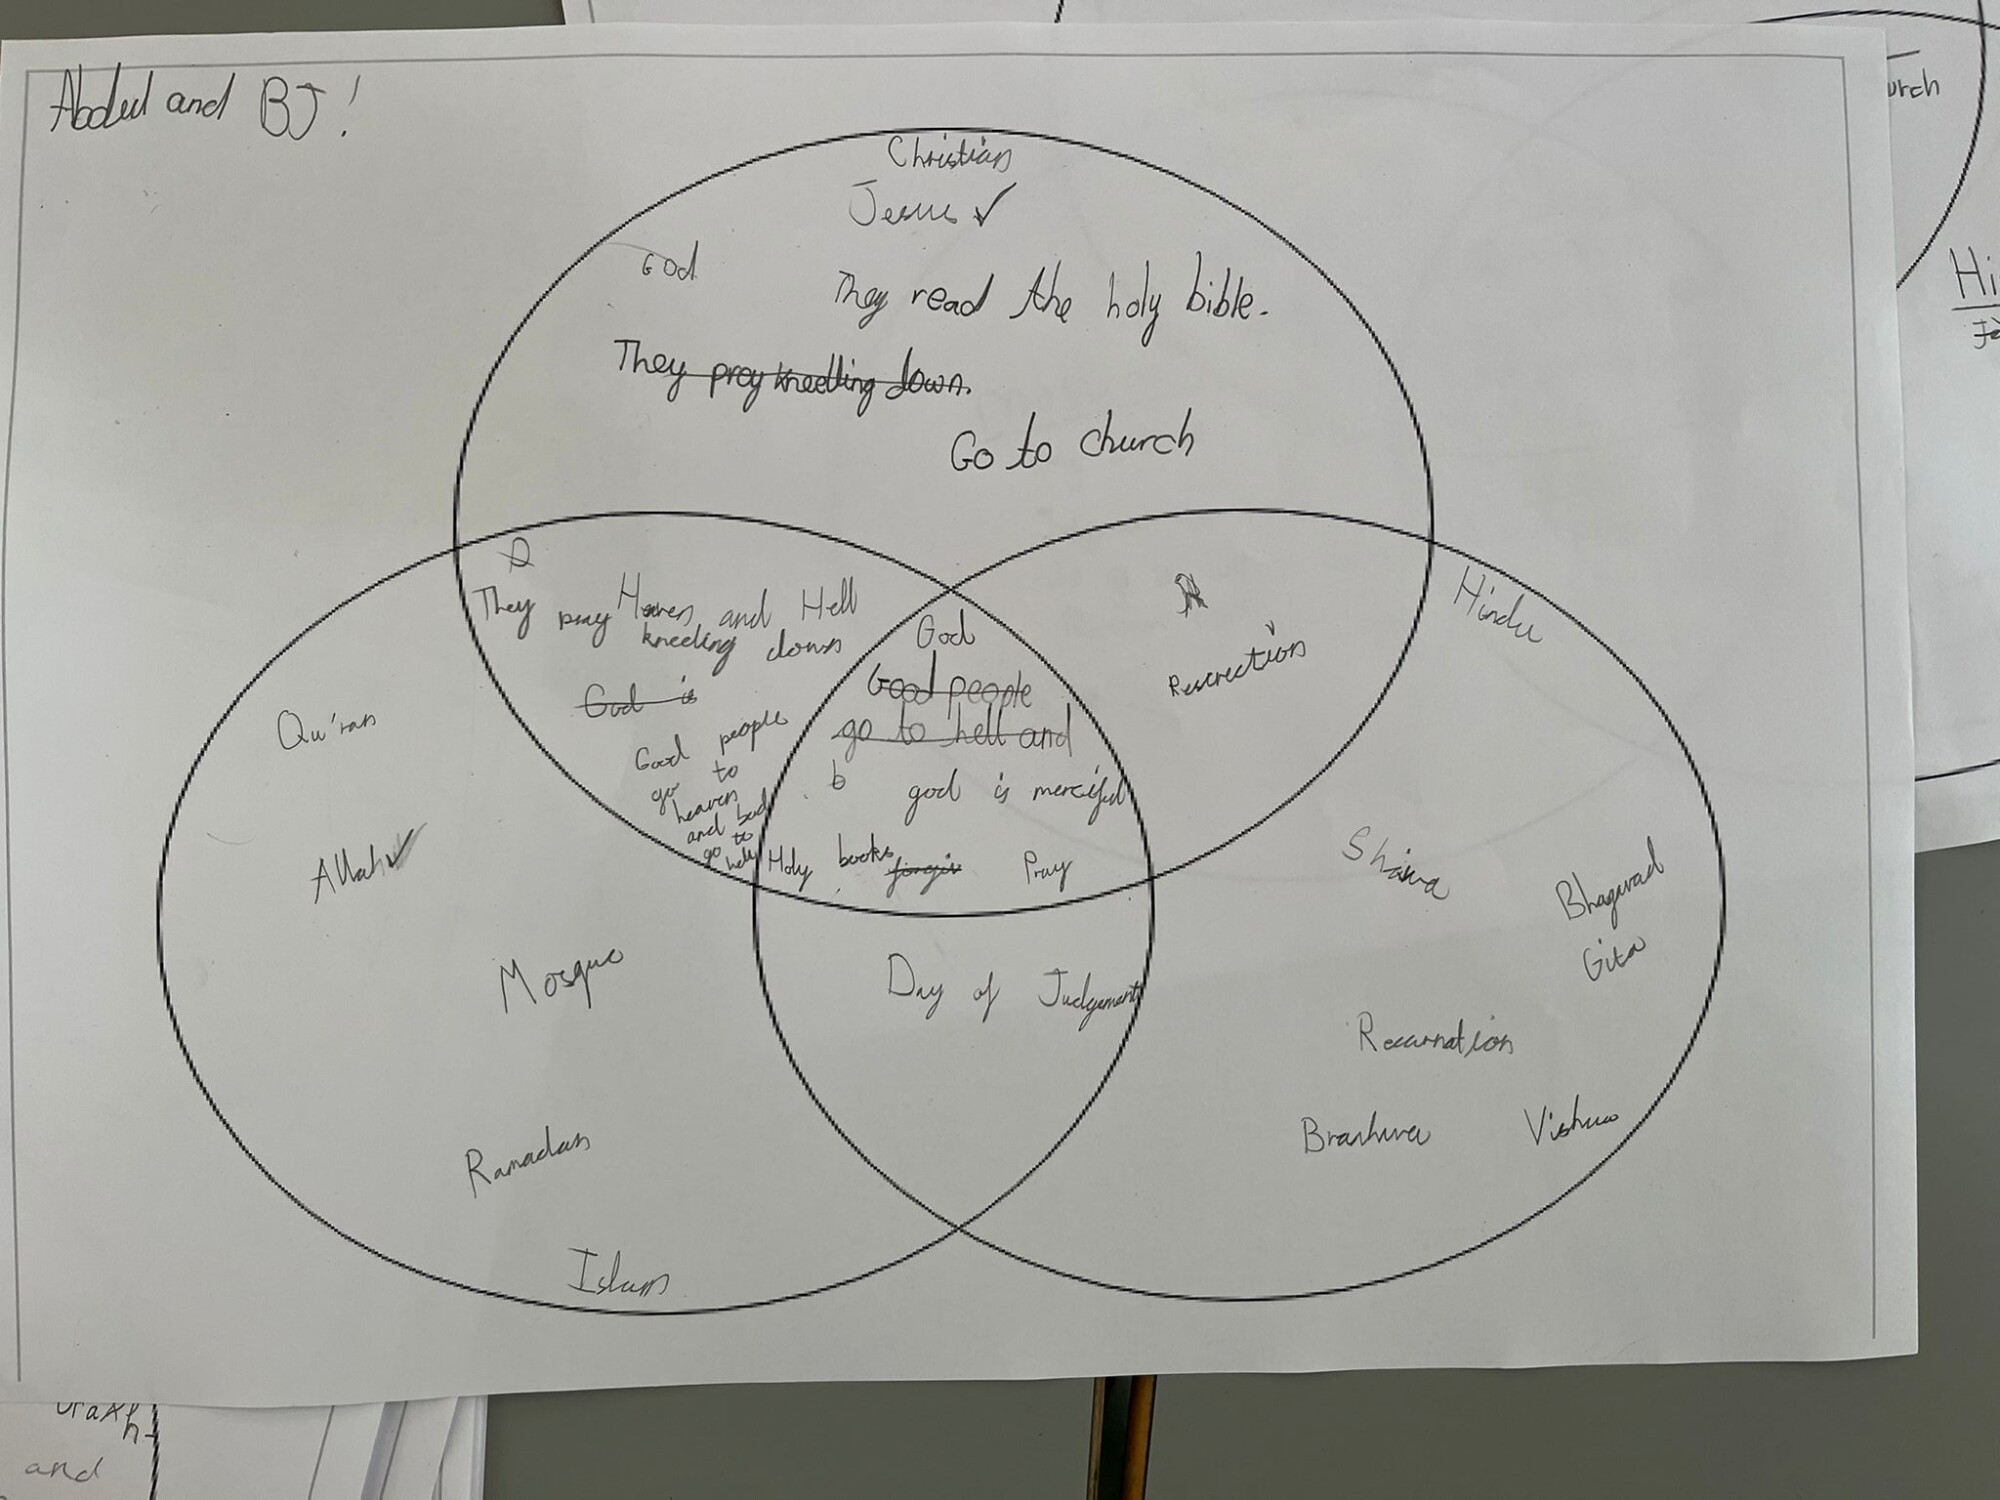 Abdul and BJ!
Christian
Jesus ✓
God
They read the holy bible.
They pray kneelling down.
Go to church
They pray Heaven and Hell
kneeling down
God is
Good people
go to
heaven
and bad
go to
hely
God
Good people
go to hell and
b god is merciful
Holy books forgiv Pray
Rescrection
Hindu
Qu'ran
Allah ✓
Mosque
Ramadan
Islam
Day of Judgement
Shiva
Bhagavad
Gita
Recarnation
Vishua
urch
Hi
and